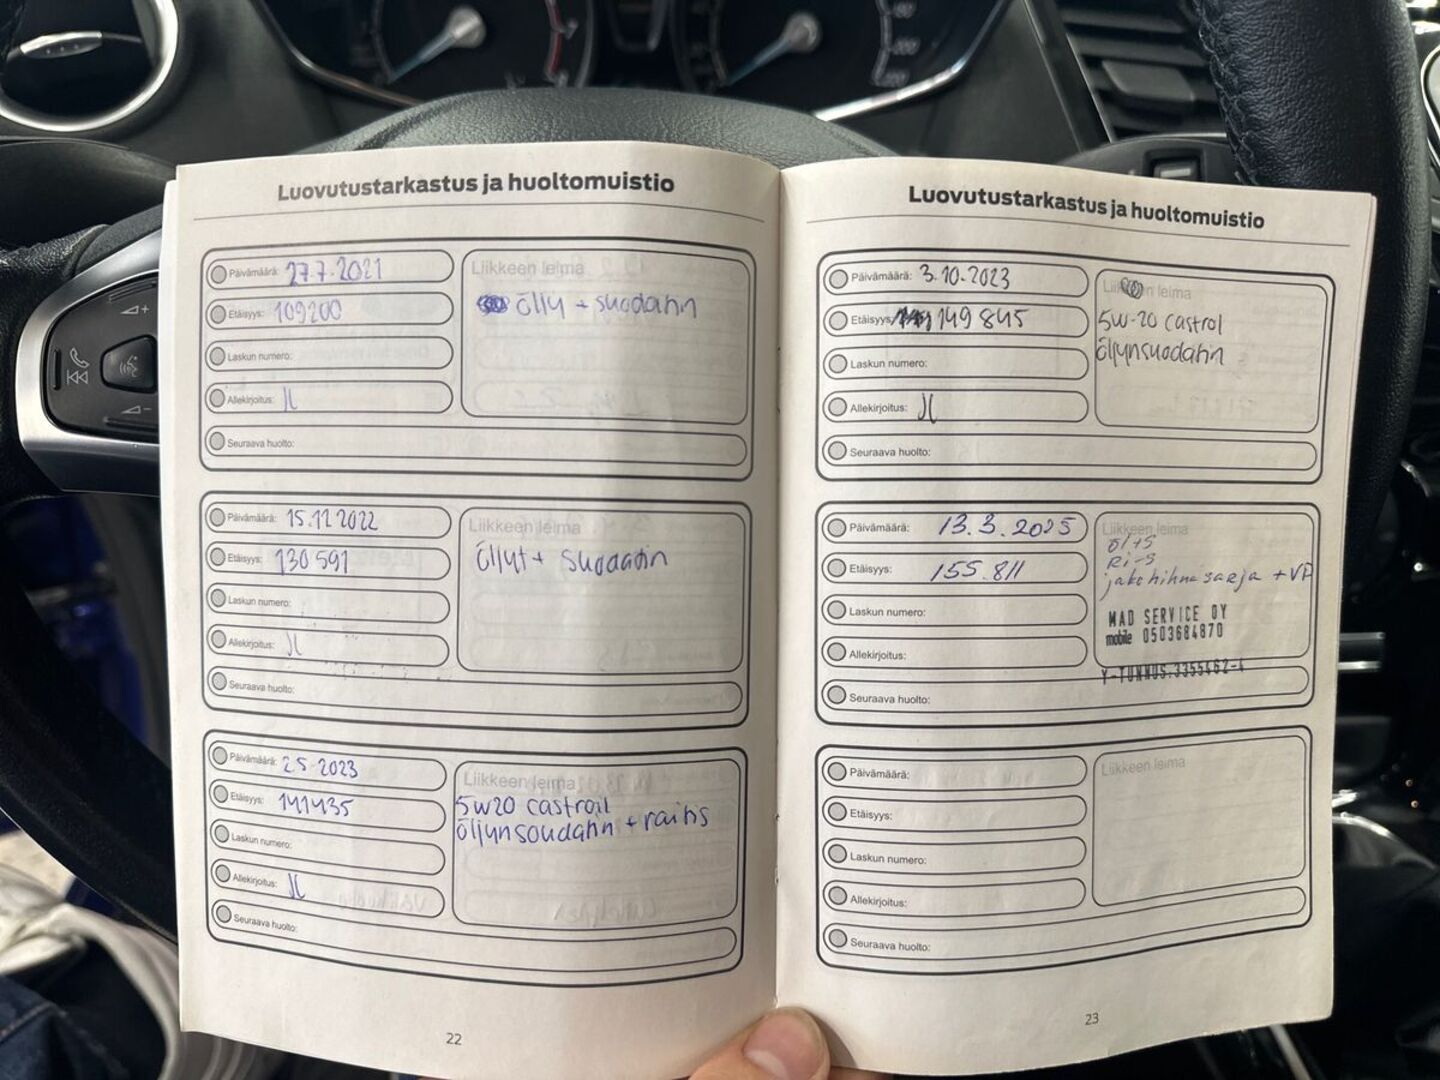 Luovutustarkastus ja huoltomuistio
Päivämäärä: 27.7.2021
Etäisyys: 109200
Laskun numero:
Allekirjoitus:
Seuraava huolto:
Liikkeen leima
öljy + suodatin
Päivämäärä: 15.12 2022
Etäisyys: 130 591
Laskun numero:
Allekirjoitus:
Seuraava huolto:
Liikkeen leima
öljyt + suodatin
Päivämäärä: 2.5.2023
Etäisyys: 141435
Laskun numero:
Allekirjoitus:
Seuraava huolto:
Liikkeen leima
5w20 castroil
öljynsoudatin + raitis
22
Luovutustarkastus ja huoltomuistio
Päivämäärä: 3.10.2023
Etäisyys: 149 845
Laskun numero:
Allekirjoitus:
Seuraava huolto:
Liikkeen leima
5w-20 castrol
öljynsuodatin
Päivämäärä: 13.3.2025
Etäisyys: 155.811
Laskun numero:
Allekirjoitus:
Seuraava huolto:
Liikkeen leima
öl+s
Ri-s
jakohihnasarja + VP
MAD SERVICE OY
mobile 0503684870
Y-TUNNUS.3355462-4
Päivämäärä:
Etäisyys:
Laskun numero:
Allekirjoitus:
Seuraava huolto:
Liikkeen leima
23